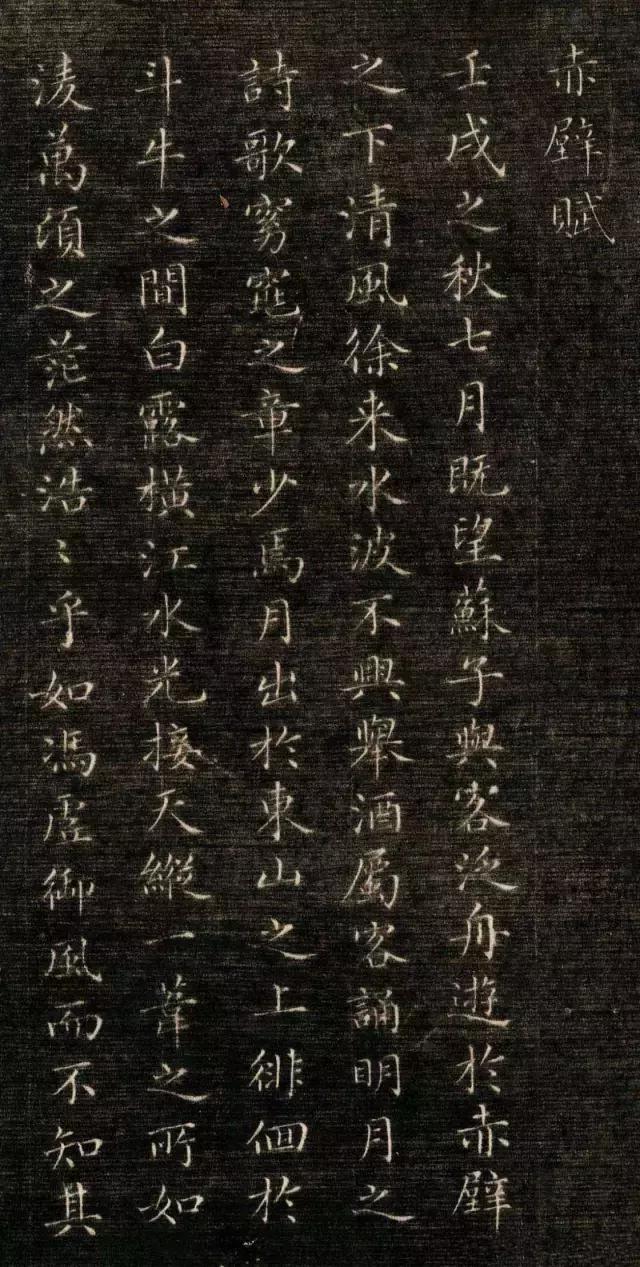 赤壁賦
壬戌之秋七月既望蘇子與客泛舟遊於赤壁
之下清風徐来水波不興舉酒屬客誦明月之
詩歌窈窕之章少焉月出於東山之上徘徊於
斗牛之間白露橫江水光接天縱一葦之所如
淩萬頃之茫然浩〻乎如馮虛御風而不知其